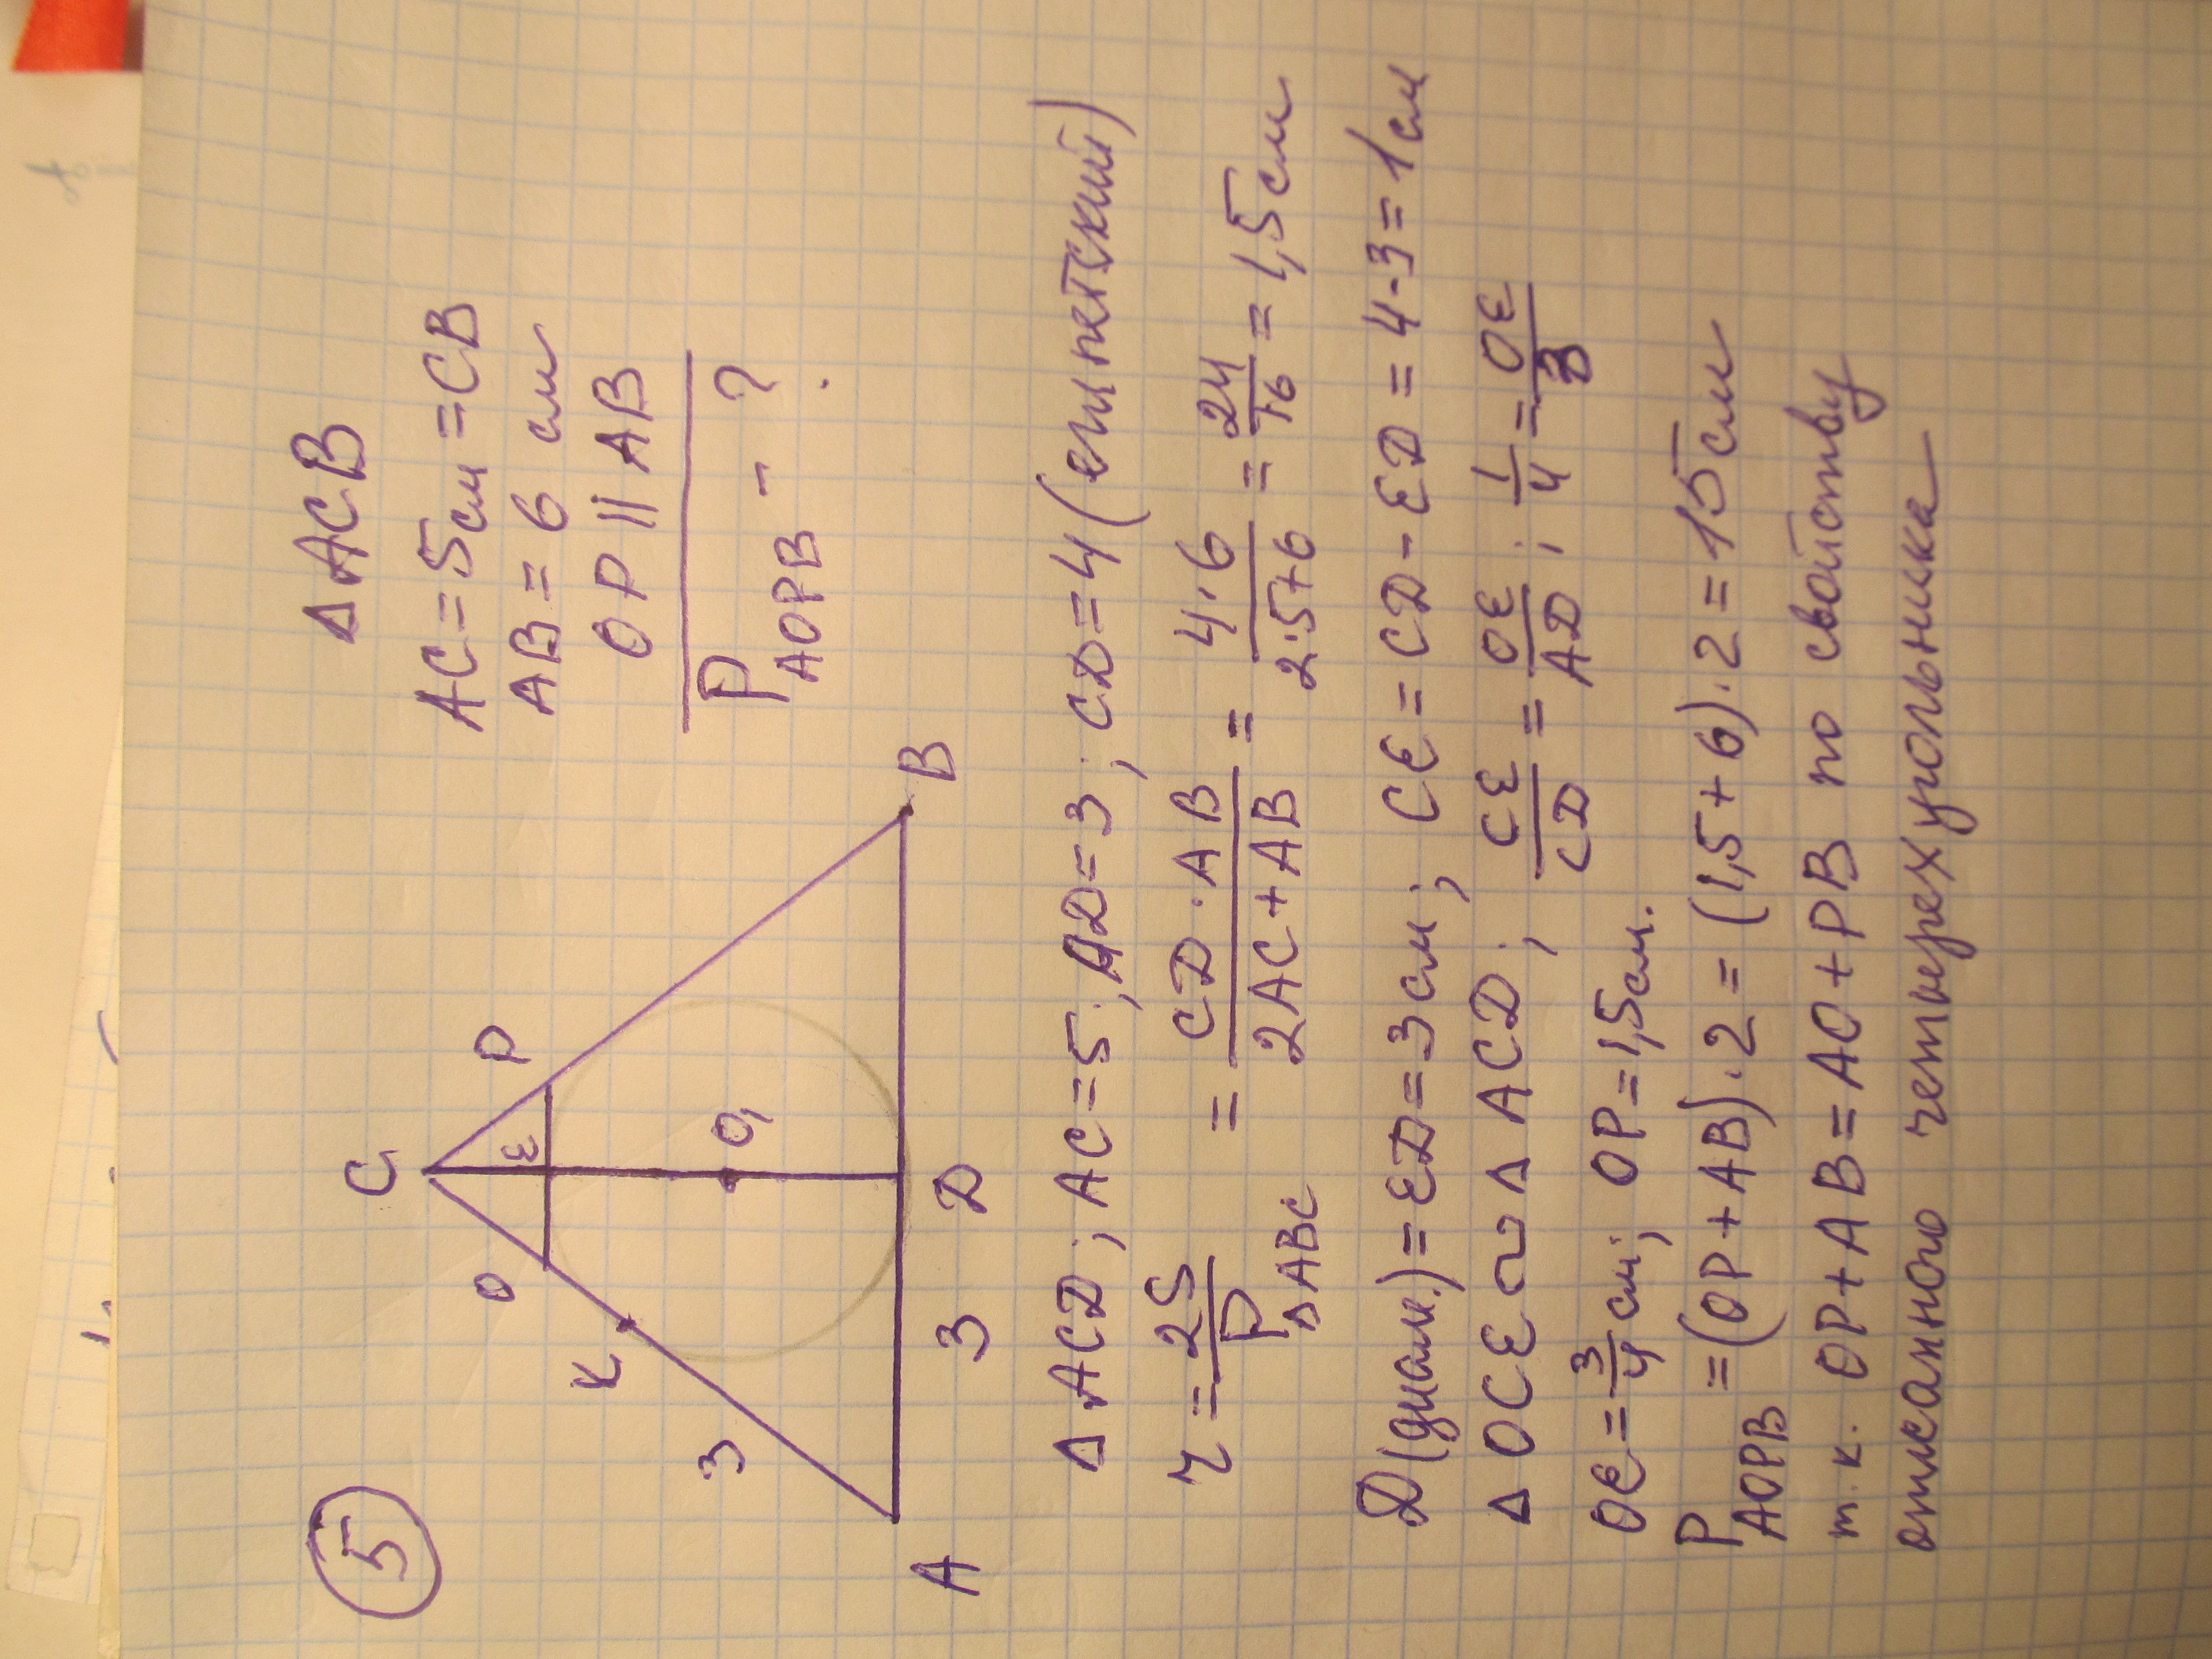 5
Δ ACB
AC = 5 см = CB
AB = 6 см
OP || AB
P AOPB - ?
C
O
E
P
K
3
O₁
A
3
D
B
Δ ACD; AC = 5; AD = 3; CD = 4 (египетский)
r = 2S/P ΔABC = CD · AB/2AC + AB = 4 · 6/2·5+6 = 24/16 = 1,5 см
D (диам.) = ED = 3 см; CE = CD - ED = 4 - 3 = 1 см
Δ OCE ∾ Δ ACD; CE/CD = OE/AD; 1/4 = OE/3
OE = 3/4 см; OP = 1,5 см.
P AOPB = (OP + AB) · 2 = (1,5 + 6) · 2 = 15 см
т. к. OP + AB = AO + PB по свойству
описанного четырехугольника